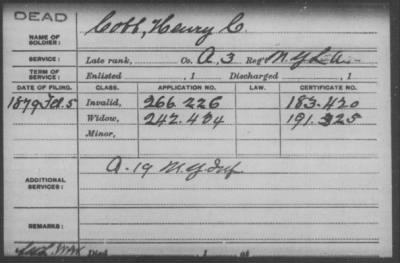 DEAD
NAME OF SOLDIER: Cobb, Henry C.
SERVICE: Late rank, Co. A. 3 Reg't N.Y.L.A.
TERM OF SERVICE: Enlisted , 1 Discharged , 1
DATE OF FILING. CLASS. APPLICATION NO. LAW. CERTIFICATE NO.
1879 Feb. 5 Invalid, 266.226 183.420
Widow, 242.434 191.325
Minor,
ADDITIONAL SERVICES: A. 19 N.Y. Inf.
REMARKS:
Died , 1 , at